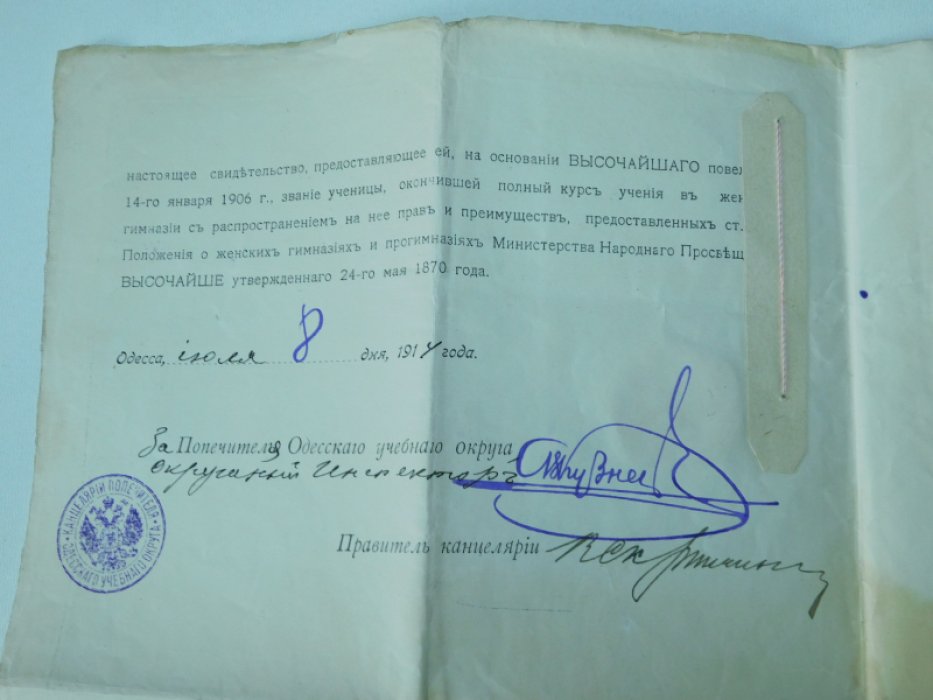 настоящее свидѣтельство, предоставляющее ей, на основаніи ВЫСОЧАЙШАГО повел
14-го января 1906 г., званіе ученицы, окончившей полный курсъ ученія въ жен
гимназіи съ распространеніемъ на нее правъ и преимуществъ, предоставленныхъ ст.
Положенія о женскихъ гимназіяхъ и прогимназіяхъ Министерства Народнаго Просвѣщ
ВЫСОЧАЙШЕ утвержденнаго 24-го мая 1870 года.
Одесса, іюля 8 дня, 1914 года.
За Попечителя Одесскаго учебнаго округа
Окружный Инспекторъ
Правитель канцеляріи
КАНЦЕЛЯРІИ ПОПЕЧИТЕЛЯ
ОДЕССКАГО УЧЕБНАГО ОКРУГА